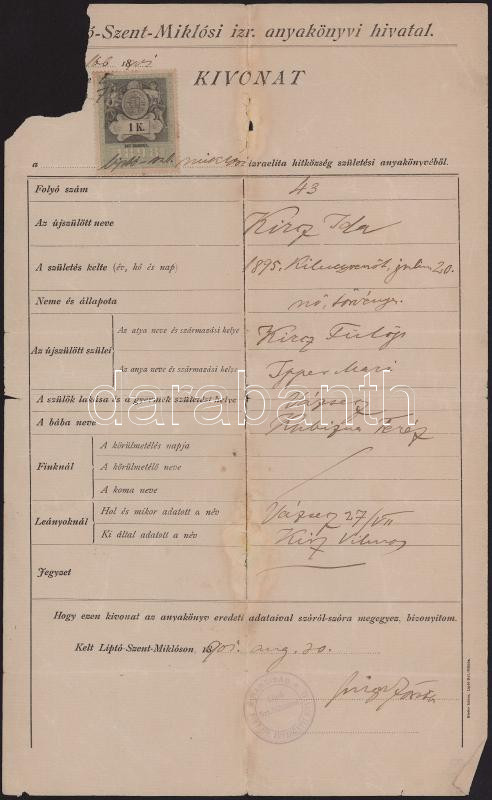 ó-Szent-Miklósi izr. anyakönyvi hivatal.
KIVONAT
1 K.
a izraelita hitközség születési anyakönyvéből.
Folyó szám 43
Az újszülött neve Kircz Ida
A születés kelte (év, hó és nap) 1895. július 20.
Neme és állapota nő, törvényes
Az újszülött szülei
Az atya neve és származási helye Kircz Fülöp
Az anya neve és származási helye Ipper Mari
A szülők lakása és a gyermek születési helye Vápsez
A bába neve Teréz
Fiuknál
A körülmetélés napja
A körülmetélő neve
A koma neve
Leányoknál
Hol és mikor adatott a név Vápsez 27/VII
Ki által adatott a név Kircz Vilmos
Jegyzet
Hogy ezen kivonat az anyakönyv eredeti adataival szóról-szóra megegyez, bizonyitom.
Kelt Liptó-Szent-Miklóson, 1901. aug. 20.
darabanth